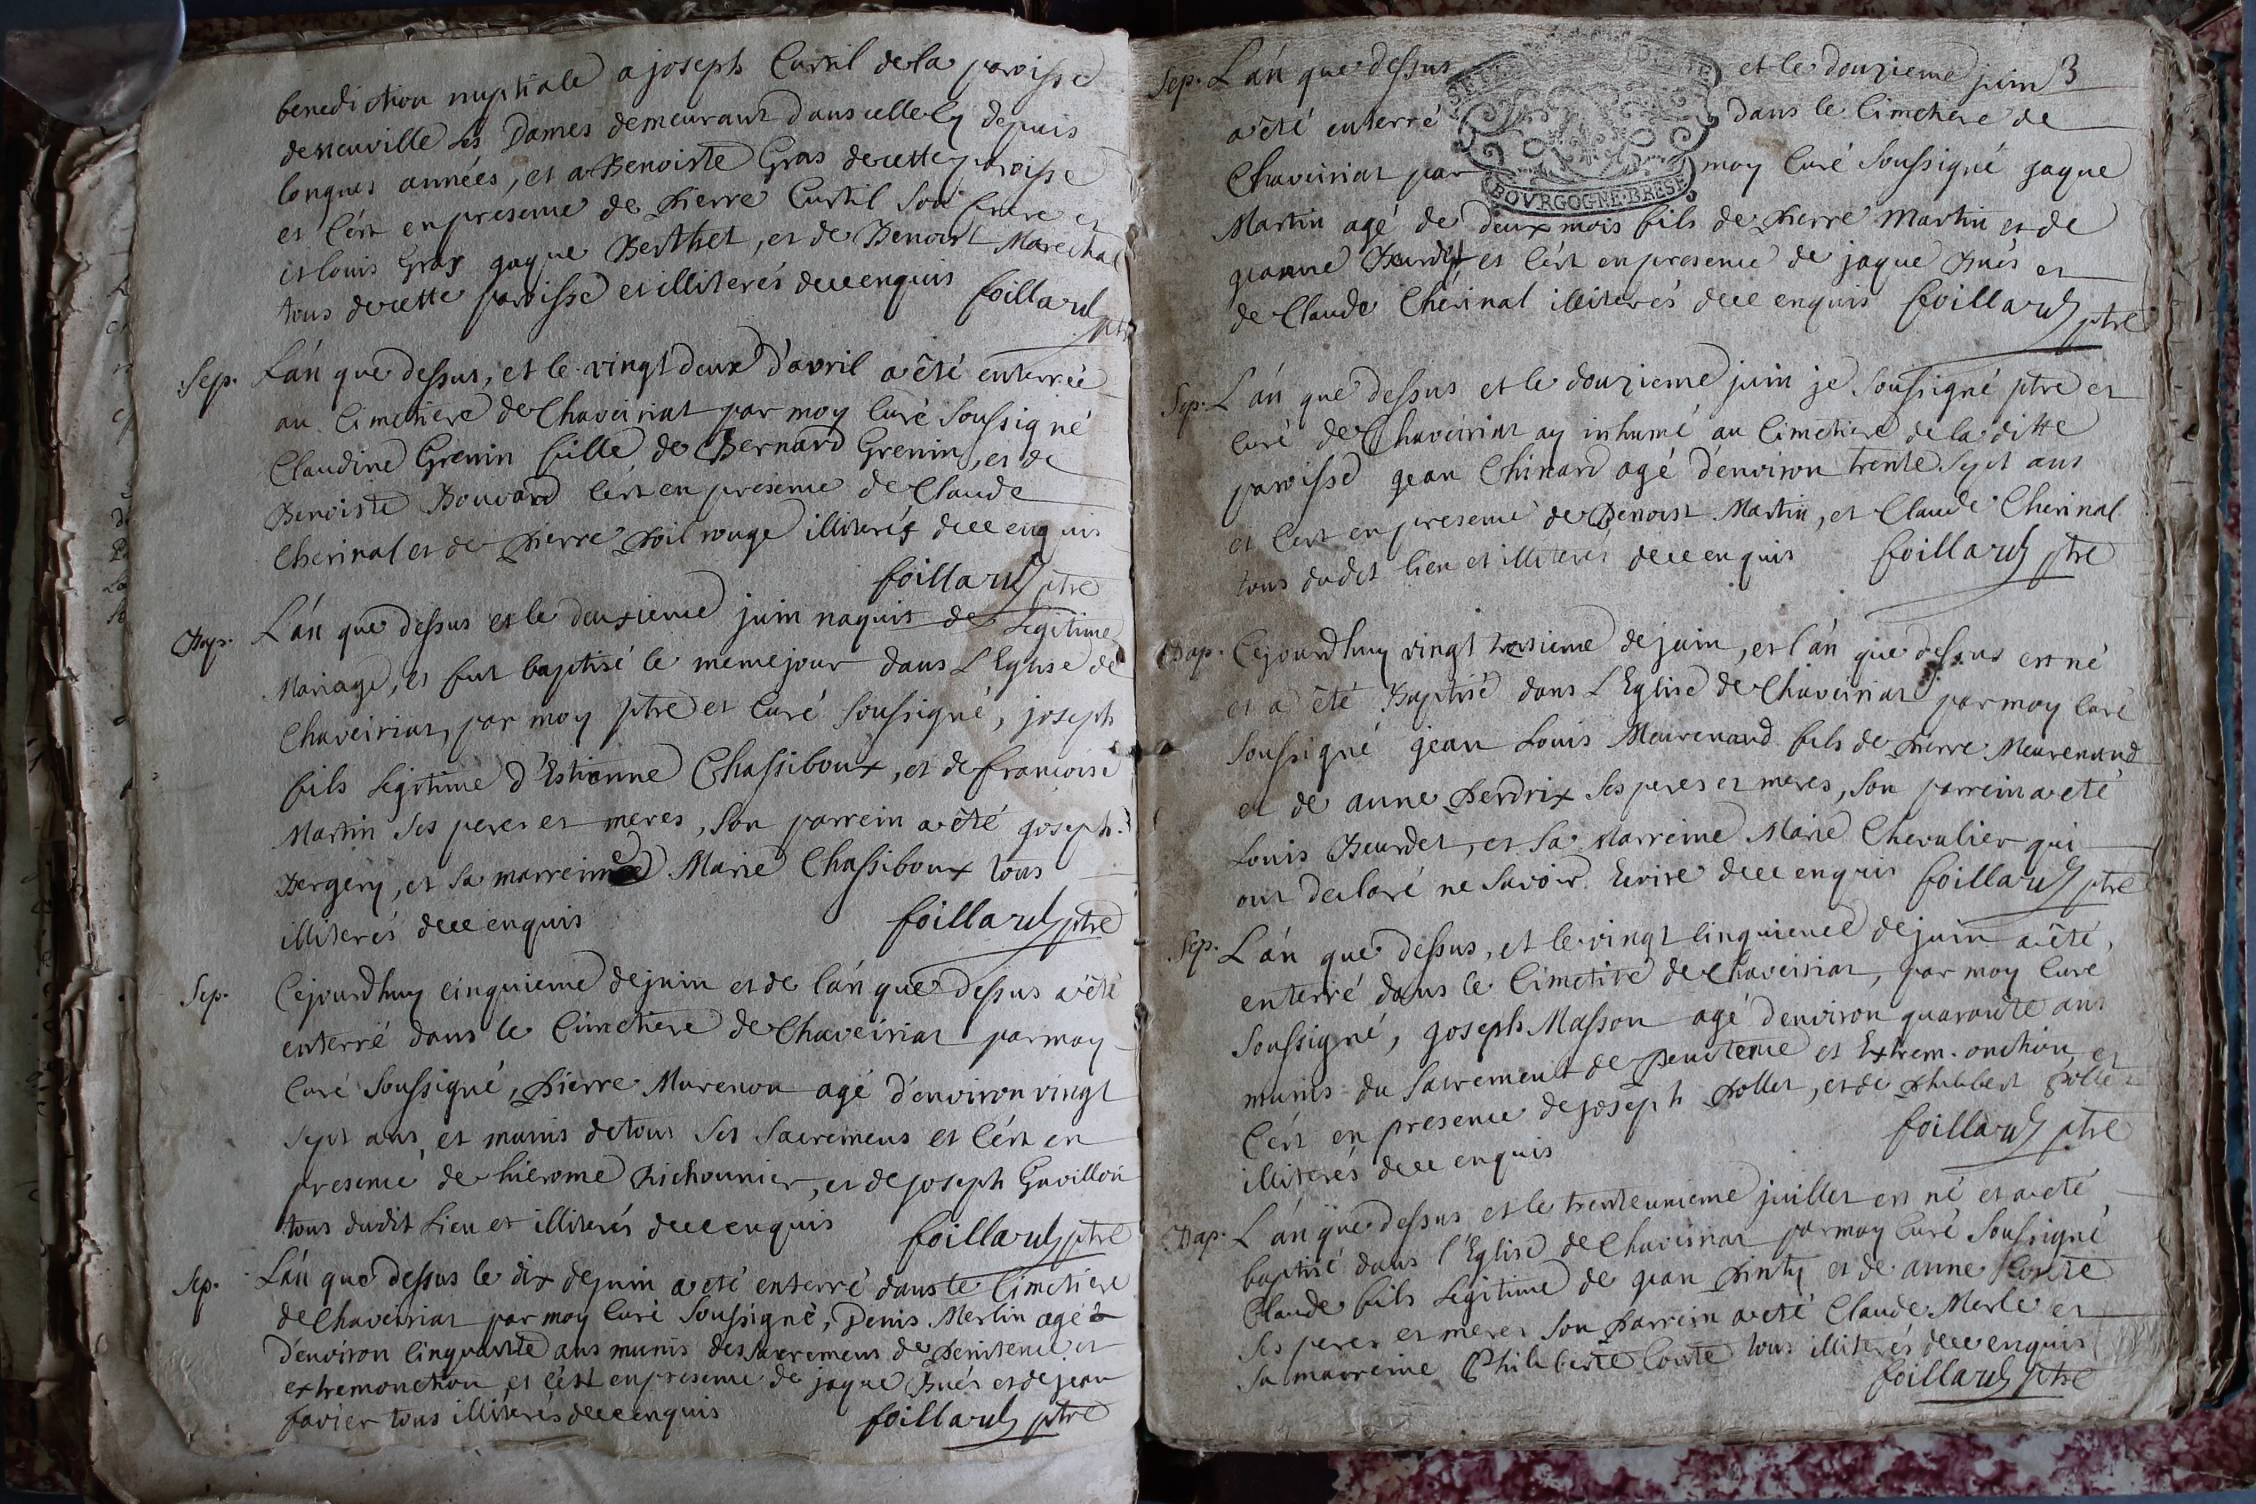 benediction nuptiale a joseph Curtil de la paroisse
de neuville les Dames demeurant dans celle cy depuis
longues années, et a Benoiste Gras de cette paroisse
et c'ést en presence de pierre Curtil son frere et
et louis Gras jaque Berthet, et de Benoist Marechal
tous de cette paroisse et illiterés de ce enquis foillard
ptre
Sep. L'án que dessus, et le vingt deux d'avril a été enterrée
au Cimetiere de Chaveiriat par moy Curé soussigné
Claudine Grenin fille de Bernard Grenin, et de
Benoiste Bouvard c'est en presence de Claude
Cherinal et de pierre poil rouge illiterés de ce enquis
foillard ptre
Bap. L'án que dessus et le deuxieme juin naquit de Legitime
Mariage, et fut baptisé le meme jour dans L'Eglise de
Chaveiriat, par moy ptre et Curé soussigné, joseph
fils Legitime d'Estienne Chassiboux, et de francoise
Martin ses peres et meres, son parrein a été joseph
Bergery, et sa marreine Marie Chassiboux tous
illiterés de ce enquis foillard ptre
Sep. Cejourdhuy cinquieme de juin et de l'án que dessus a été
enterré dans le Cimetiere de Chaveiriat par moy
Curé soussigné, pierre Murenon agé d'environ vingt
sept ans, et munis de tous ses sacremens et c'ést en
presence de hierome pichonnier, et de joseph Gavillon
tous dudit Lieu et illiterés de ce enquis foillard ptre
Sep. L'án que dessus le dix de juin a eté enterré dans le Cimetiere
de Chaveiriat par moy Curé soussigné, Denis Merlin agé
d'environ Cinquante ans munis des sacremens de penitence et
extremonction et c'ést en presence de jaque Bués et de jean
favier tous illiterés de ce enquis foillard ptre
3
Sep. L'án que dessus et le douzieme juin
a été enterré dans le Cimetiere de
Chaveiriat par moy Curé soussigné jaque
BOURGOGNE·BRESSE
Martin agé de deux mois fils de pierre Martin et de
jeanne et c'ést en presence de jaque Bués et
de Claude Chérinal illiterés de ce enquis foillard
ptre
Sep. L'án que dessus et le douzieme juin je soussigné ptre et
Curé de Chaveiriat ay inhumé au Cimetiere de la ditte
paroisse jean Chinard agé d'environ trente sept ans
et c'est en presence de Benoist Martin, et Claude Cherinal
tous dudit lieu et illiterés de ce enquis foillard ptre
Bap. Cejourdhuy vingt troisieme de juin, et l'án que dessus est né
et a été Baptisé dans L'Eglise de Chaveiriat par moy Curé
soussigné jean Louis Meurenand fils de pierre Meurenand
et de anne perdrix ses peres et meres, son parrein a eté
Louis Beurdet, et sa Marreine Marie Chevalier qui
ont declaré ne savoir Ecrire de ce enquis foillard ptre
Sep. L'án que dessus, et le vingt cinquieme de juin a été,
enterré dans le Cimetire de Chaveiriat, par moy Curé
soussigné, joseph Masson agé d'environ quarante ans
munis du sacrement de penitence et Extrem.onction, et
C'ést en presence de joseph pollet, et de philibert pollet
illiterés de ce enquis foillard ptre
Bap. L'án que dessus et le trenteunieme juillet est né et a eté
baptisé dans l'Eglise de Chaveiriat par moy Curé soussigné
Claude fils Legitime de jean et de anne Conte
ses peres et meres son parrein a eté Claude Merle et
sa marreine Philiberte Conte tous illiterés de ce enquis
foillard ptre